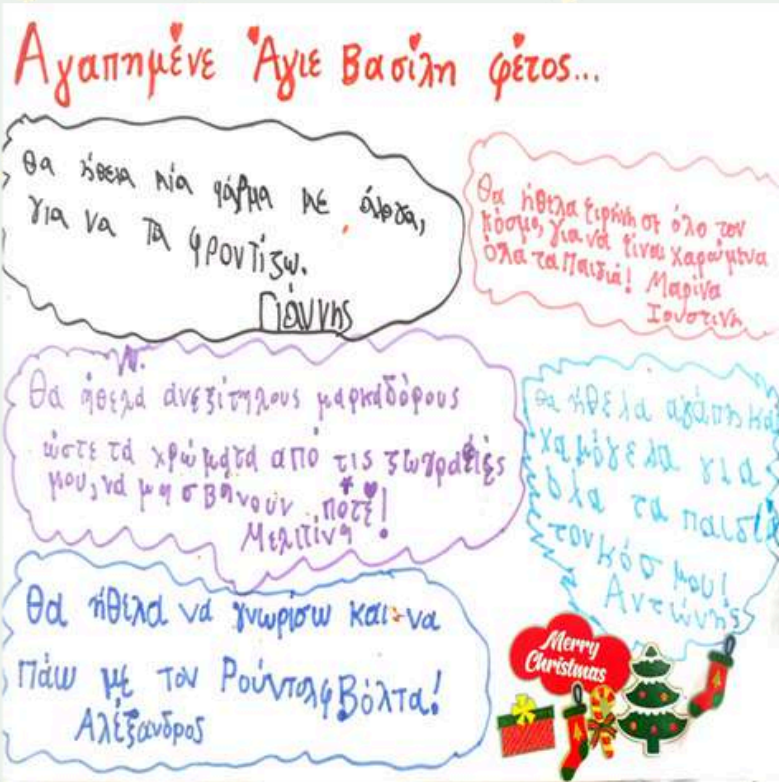 Αγαπημένε Άγιε Βασίλη φέτος...
Θα ήθελα μία φάρμα με άλογα,
για να τα φροντίζω.
Γιάννης
Θα ήθελα ειρήνη σε όλο τον
κόσμο, για να είναι χαρούμενα
όλα τα παιδιά! Μαρίνα
Ιουστίνη
Θα ήθελα ανεξίτηλους μαρκαδόρους
ώστε τα χρώματα από τις ζωγραφιές
μου, να μη σβήνουν ποτέ!
Μελιτίνη
Θα ήθελα αγάπη και
χαμόγελα για
όλα τα παιδιά
του κόσμου!
Αντώνης
Θα ήθελα να γνωρίσω και να
πάω με τον Ρούντολφ βόλτα!
Αλέξανδρος
Merry
Christmas